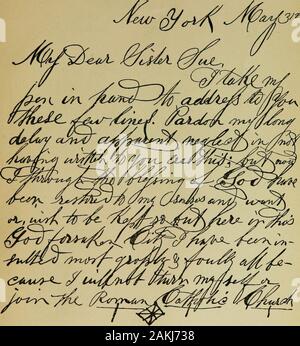 New York May 3rd
My Dear Sister Sue,
I take my
pen in hand to address to you
these few lines. Pardon my long
delay and apparent neglect in not
having written to you ere this; but now
I through the blessing of God have
been restored to my senses and want
or, wish to be kept so but here in this
God forsaken City I have been in-
sulted most grossly & foully all be-
cause I will not throw myself or
join the Roman Catholic Church
alamy
Image ID: 2AKJ738
www.alamy.com